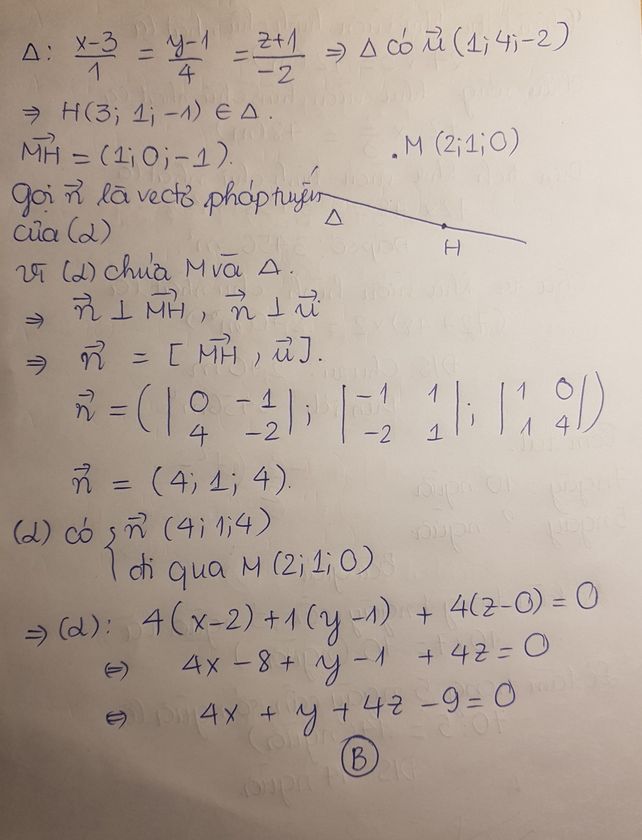 Δ: \frac{x-3}{1} = \frac{y-1}{4} = \frac{z+1}{-2} ⇒ Δ có \vec{u} (1; 4; -2)
⇒ H(3; 1; -1) ∈ Δ.
\vec{MH} = (1; 0; -1).
. M (2; 1; 0)
Gọi \vec{n} là vectơ pháp tuyến
Δ
H
của (α)
Vì (α) chứa M và Δ.
⇒ \vec{n} ⊥ \vec{MH}, \vec{n} ⊥ \vec{u}
⇒ \vec{n} = [\vec{MH}, \vec{u}].
\vec{n} = ( | 0 -1 | ; | -1 1 | ; | 1 0 | )
| 4 -2 | | -2 1 | | 1 4 |
\vec{n} = (4; 1; 4).
(α) có { \vec{n} (4; 1; 4)
đi qua M (2; 1; 0)
⇒ (α): 4(x-2) + 1(y-1) + 4(z-0) = 0
⇔ 4x - 8 + y - 1 + 4z = 0
⇔ 4x + y + 4z - 9 = 0
B